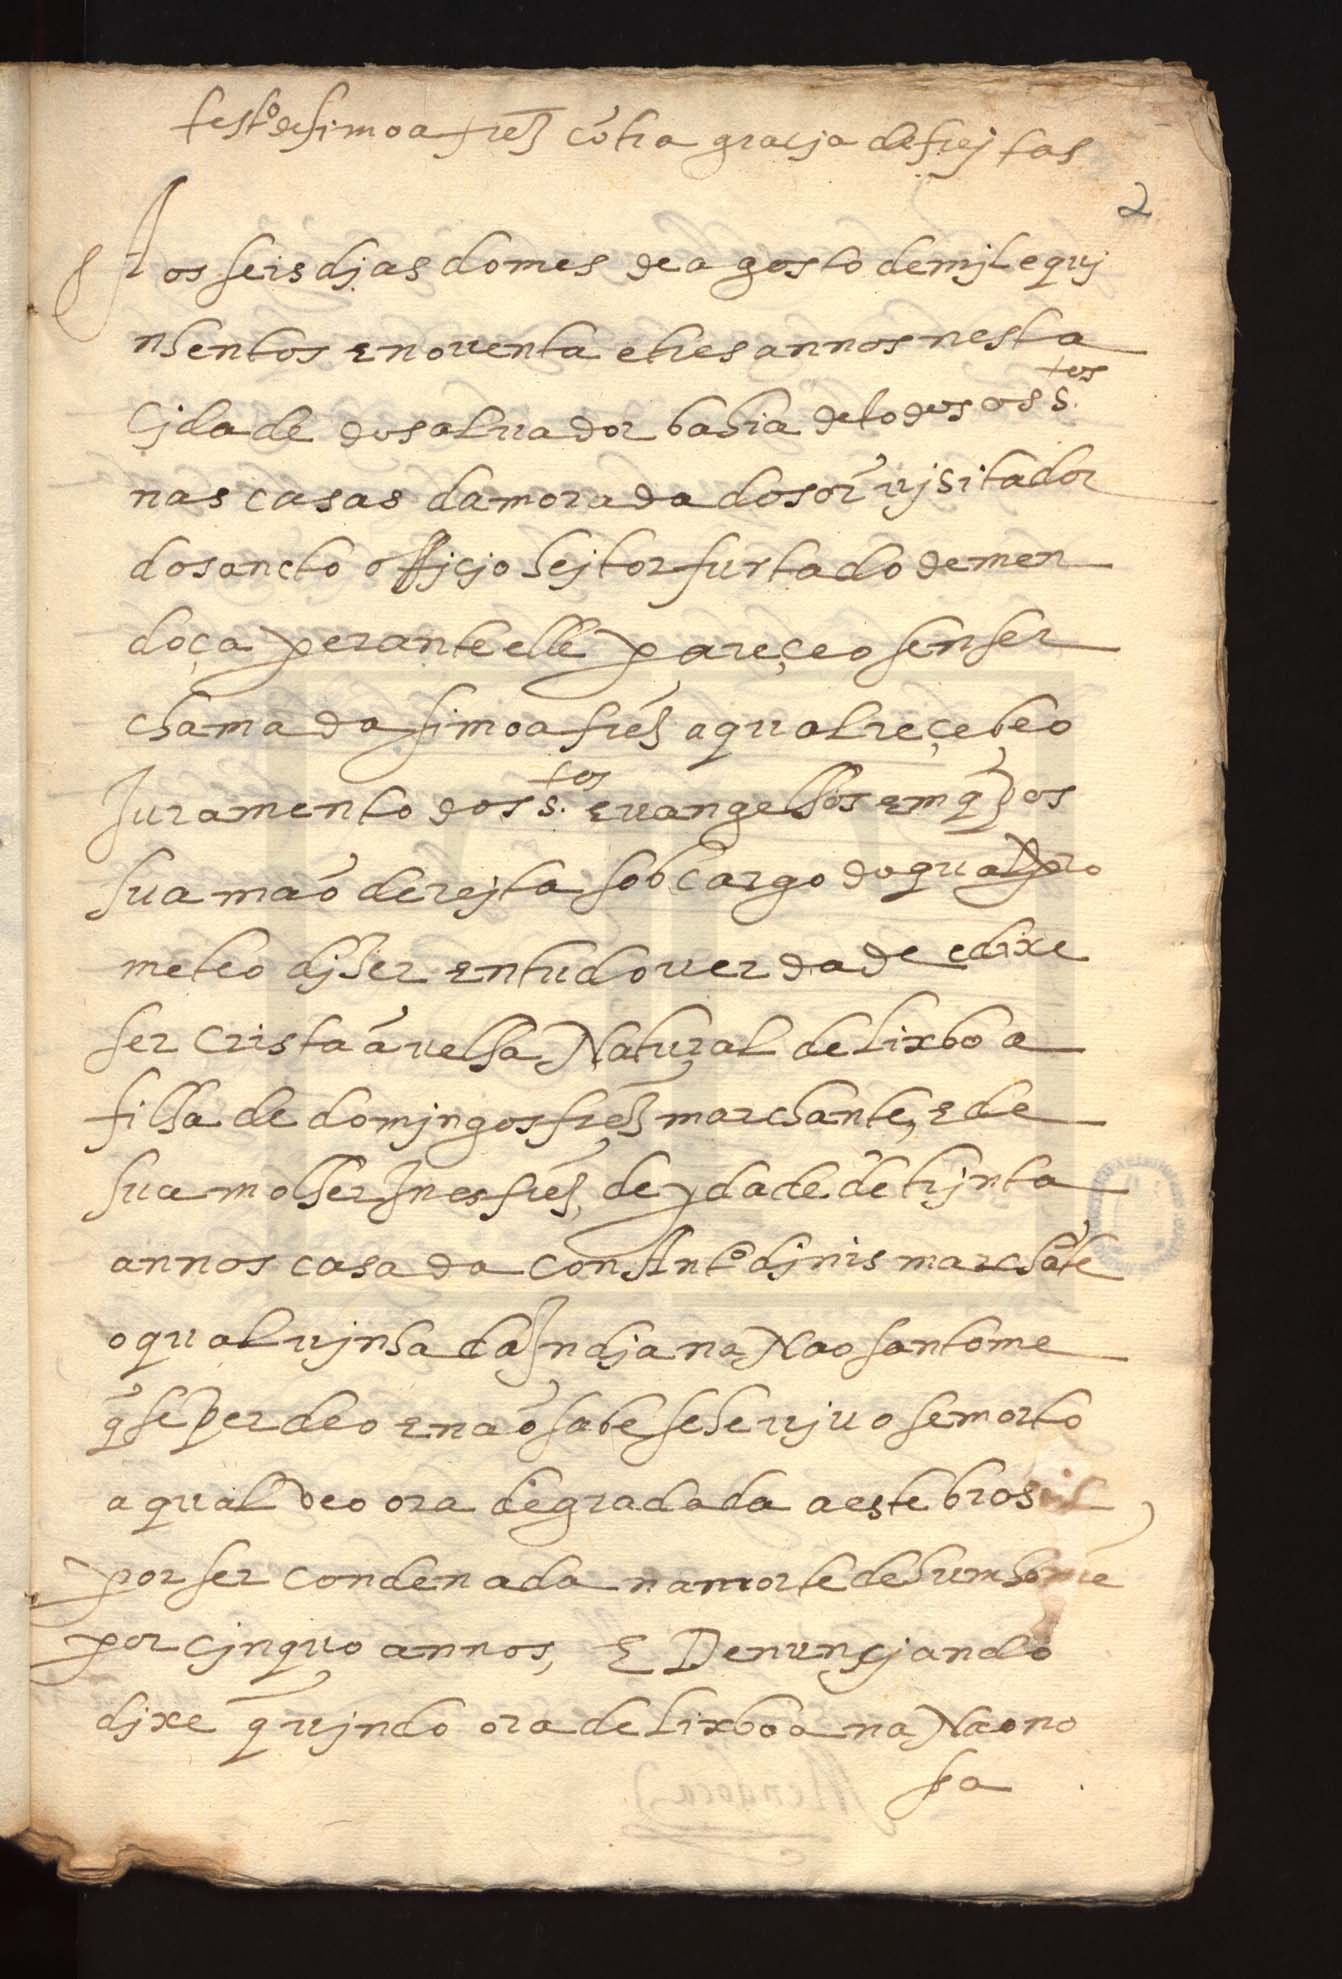 testo de simoa frz cõtra gracja de frejtas
2
Aos seis djas do mes de agosto de mjl e quj
nhentos e noventa e tres annos nesta
Çjdade do saluador bahia de todos os s.tos
nas casas da morada do sor vjsitador
do sancto officjo hejtor furtado de men
doça perante elle pareçeo sen ser
chamada simoa frz a qual reçebeo
Juramento dos s.tos evangelhos em q pos
sua mão derejta sob cargo do qual pro
meteo djzer en tudo verdade e dixe
ser cristaã velha Natural de lixboa
filha de domjngos frz marchante, e de
sua molher Ines frz, de ydade de trjnta
annos casada con Anto djnis marchãte
o qual vjnha da Jndja na Nao san tome
q̃ se perdeo e não sabe se he vjuo se morto
a qual veo ora degradada a este brosil
por ser condenada na morte de hum home
por çjnquo annos, E Denunçjando
djxe q̃ vjndo ora de lixboa na Nao no
sa